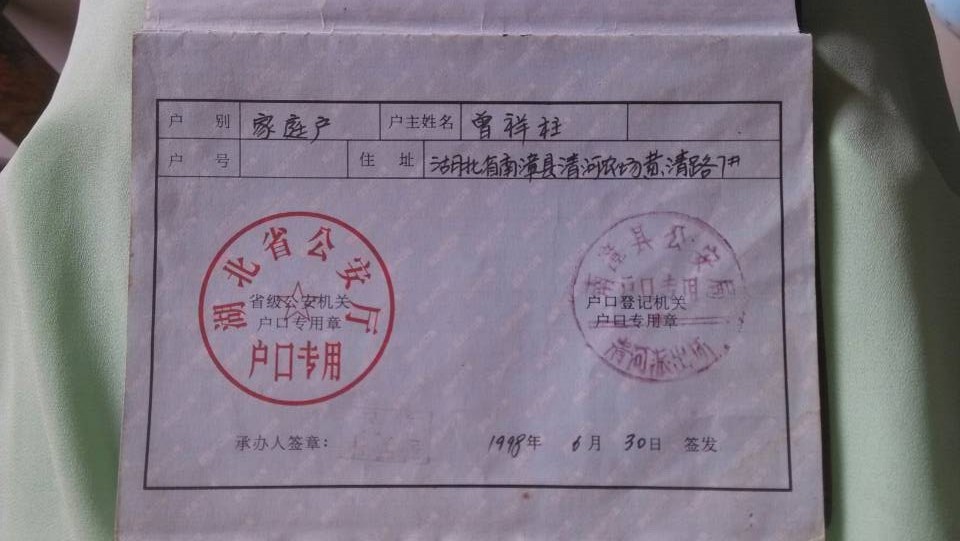 户 别 家庭户 户主姓名 曾祥柱
户 号 住 址 湖北省南漳县清河农场黄清路7#
湖北省公安厅
省级公安机关
户口专用章
户口专用
南漳县公安局
户口专用
户口登记机关
户口专用章
清河派出所
承办人签章： 1998年 6月 30日 签发